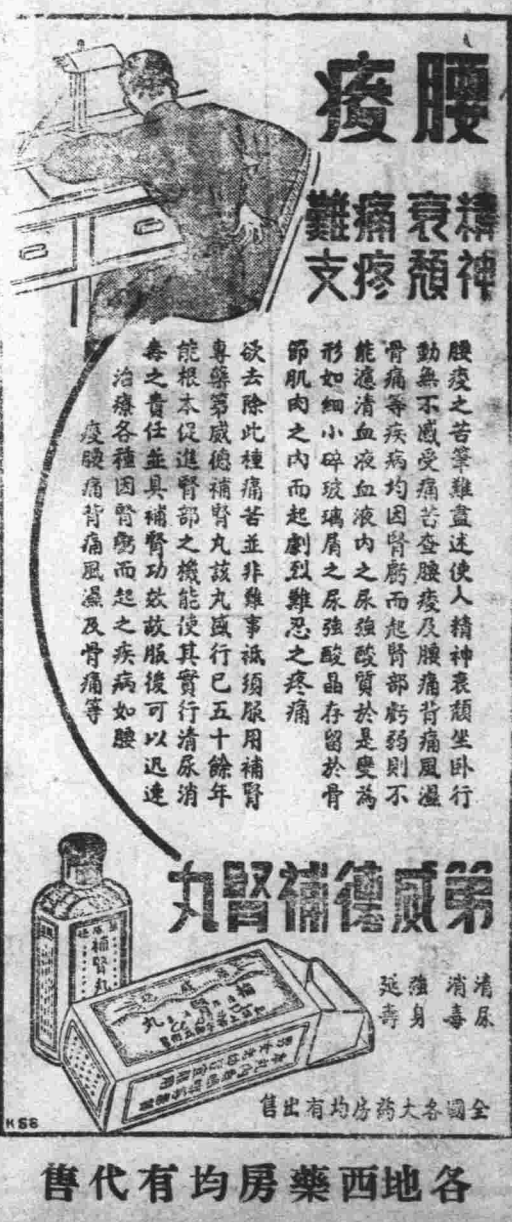 腰痠
精神衰頹
痛疼難支
腰痠之苦筆難盡述使人精神衰頹坐臥行
動無不感受痛苦查腰痠及腰痛背痛風濕
骨痛等疾病均因腎虧而起腎部虧弱則不
能濾清血液血液內之尿強酸質於是變為
形如細小碎玻璃屑之尿強酸晶存留於骨
節肌肉之內而起劇烈難忍之疼痛
欲去除此種痛苦並非難事祗須服用補腎
專藥第威德補腎丸該丸盛行已五十餘年
能根本促進腎部之機能使其實行清尿消
毒之責任並具補腎功效故服後可以迅速
治療各種因腎虧而起之疾病如腰
痠腰痛背痛風濕及骨痛等
第威德補腎丸
清尿消毒
強身延壽
補腎丸
全國各大葯房均有出售
KSS
各地西藥房均有代售